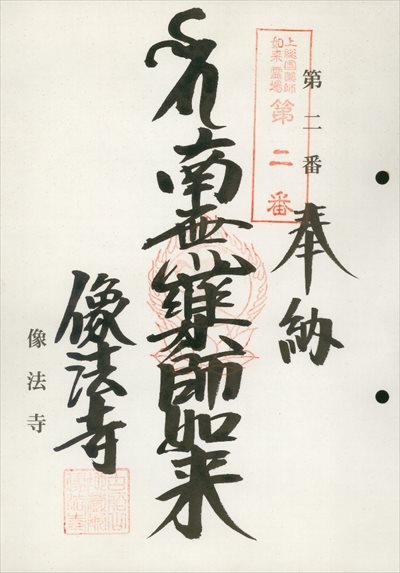 第二番
上総国薬師
如来霊場
第二番
奉納
南無薬師如来
像法寺
像法寺